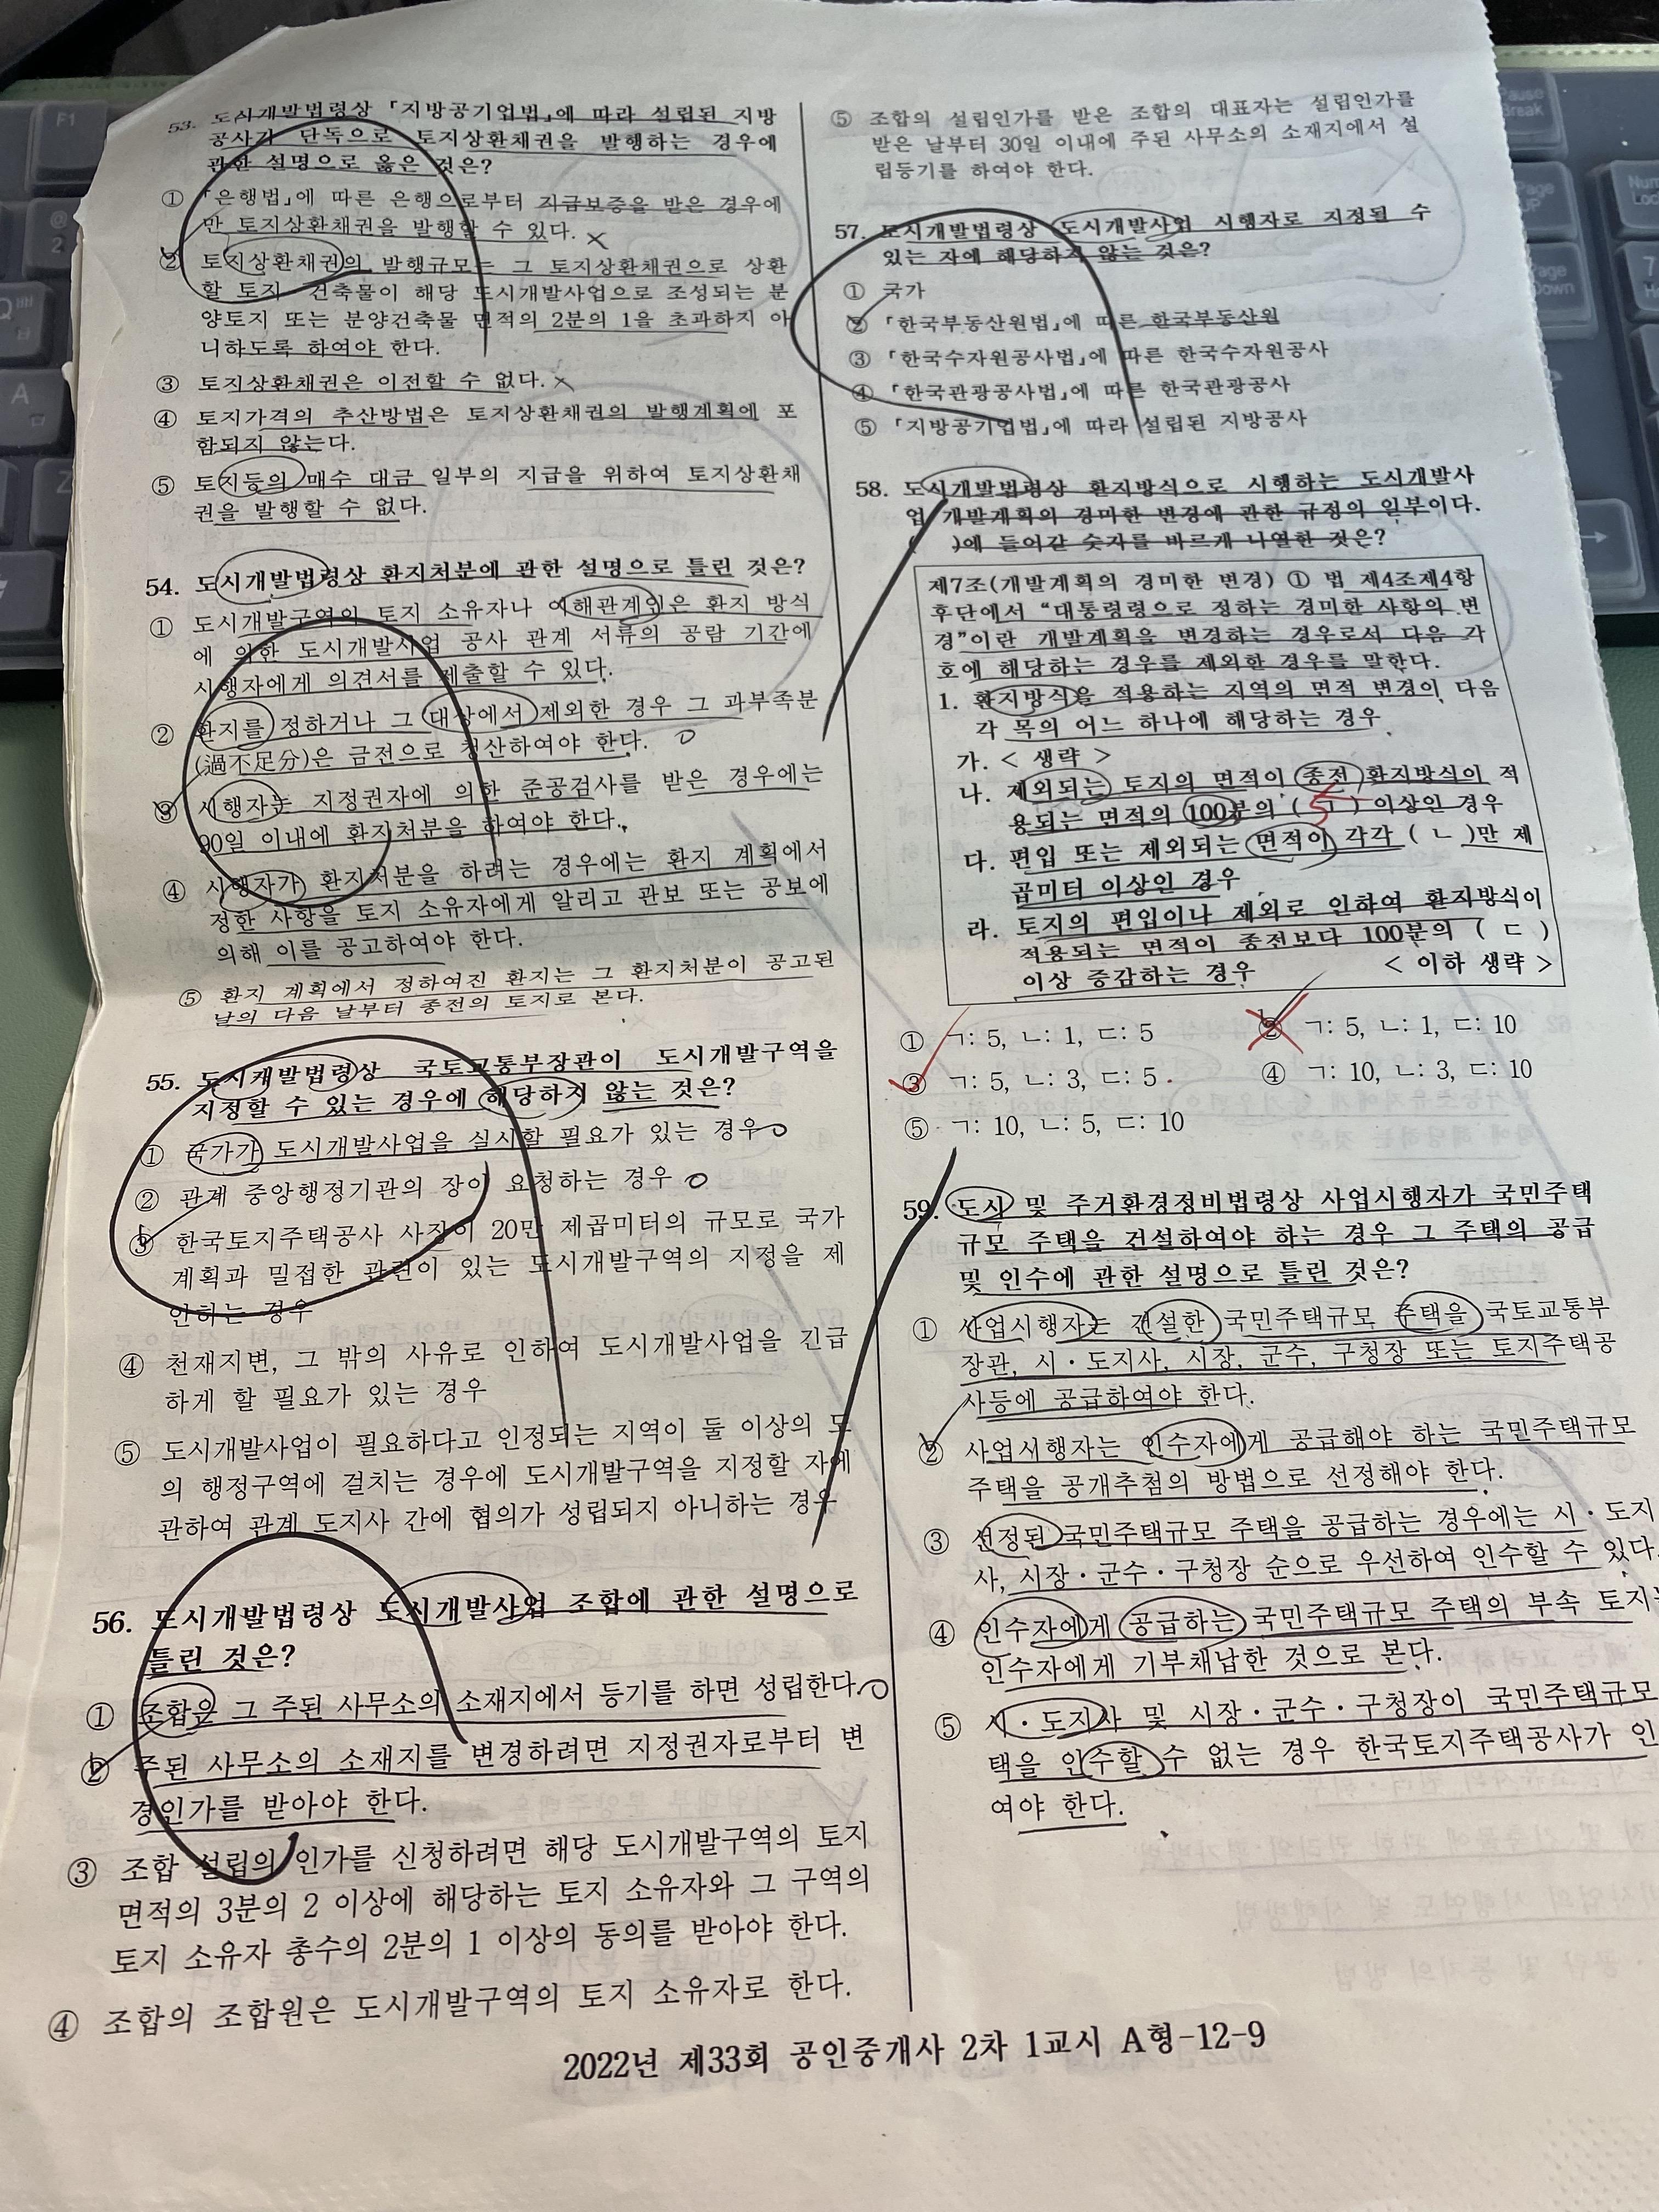 53. 도시개발법령상 「지방공기업법」에 따라 설립된 지방
공사가 단독으로 토지상환채권을 발행하는 경우에
관한 설명으로 옳은 것은?
① 「은행법」에 따른 은행으로부터 지급보증을 받은 경우에
만 토지상환채권을 발행할 수 있다. ×
② 토지상환채권의 발행규모는 그 토지상환채권으로 상환
할 토지·건축물이 해당 도시개발사업으로 조성되는 분
양토지 또는 분양건축물 면적의 2분의 1을 초과하지 아
니하도록 하여야 한다.
③ 토지상환채권은 이전할 수 없다. ×
④ 토지가격의 추산방법은 토지상환채권의 발행계획에 포
함되지 않는다.
⑤ 토지등의 매수 대금 일부의 지급을 위하여 토지상환채
권을 발행할 수 없다.
54. 도시개발법령상 환지처분에 관한 설명으로 틀린 것은?
① 도시개발구역의 토지 소유자나 이해관계인은 환지 방식
에 의한 도시개발사업 공사 관계 서류의 공람 기간에
시행자에게 의견서를 제출할 수 있다.
② 환지를 정하거나 그 대상에서 제외한 경우 그 과부족분
(過不足分)은 금전으로 청산하여야 한다. ○
③ 시행자는 지정권자에 의한 준공검사를 받은 경우에는
90일 이내에 환지처분을 하여야 한다.
④ 시행자가 환지처분을 하려는 경우에는 환지 계획에서
정한 사항을 토지 소유자에게 알리고 관보 또는 공보에
의해 이를 공고하여야 한다.
⑤ 환지 계획에서 정하여진 환지는 그 환지처분이 공고된
날의 다음 날부터 종전의 토지로 본다.
55. 도시개발법령상 국토교통부장관이 도시개발구역을
지정할 수 있는 경우에 해당하지 않는 것은?
① 국가가 도시개발사업을 실시할 필요가 있는 경우 ○
② 관계 중앙행정기관의 장이 요청하는 경우 ○
③ 한국토지주택공사 사장이 20만 제곱미터의 규모로 국가
계획과 밀접한 관련이 있는 도시개발구역의 지정을 제
안하는 경우
④ 천재지변, 그 밖의 사유로 인하여 도시개발사업을 긴급
하게 할 필요가 있는 경우
⑤ 도시개발사업이 필요하다고 인정되는 지역이 둘 이상의 도
의 행정구역에 걸치는 경우에 도시개발구역을 지정할 자에
관하여 관계 도지사 간에 협의가 성립되지 아니하는 경우
56. 도시개발법령상 도시개발사업 조합에 관한 설명으로
틀린 것은?
① 조합은 그 주된 사무소의 소재지에서 등기를 하면 성립한다. ○
② 주된 사무소의 소재지를 변경하려면 지정권자로부터 변
경인가를 받아야 한다.
③ 조합 설립의 인가를 신청하려면 해당 도시개발구역의 토지
면적의 3분의 2 이상에 해당하는 토지 소유자와 그 구역의
토지 소유자 총수의 2분의 1 이상의 동의를 받아야 한다.
④ 조합의 조합원은 도시개발구역의 토지 소유자로 한다.
⑤ 조합의 설립인가를 받은 조합의 대표자는 설립인가를
받은 날부터 30일 이내에 주된 사무소의 소재지에서 설
립등기를 하여야 한다.
57. 도시개발법령상 도시개발사업 시행자로 지정될 수
있는 자에 해당하지 않는 것은?
① 국가
② 「한국부동산원법」에 따른 한국부동산원
③ 「한국수자원공사법」에 따른 한국수자원공사
④ 「한국관광공사법」에 따른 한국관광공사
⑤ 「지방공기업법」에 따라 설립된 지방공사
58. 도시개발법령상 환지방식으로 시행하는 도시개발사
업 개발계획의 경미한 변경에 관한 규정의 일부이다.
( )에 들어갈 숫자를 바르게 나열한 것은?
제7조(개발계획의 경미한 변경) ① 법 제4조제4항
후단에서 “대통령령으로 정하는 경미한 사항의 변
경”이란 개발계획을 변경하는 경우로서 다음 각
호에 해당하는 경우를 제외한 경우를 말한다.
1. 환지방식을 적용하는 지역의 면적 변경이 다음
각 목의 어느 하나에 해당하는 경우
가. < 생략 >
나. 제외되는 토지의 면적이 종전 환지방식이 적
용되는 면적의 100분의 ( ㄱ ) 이상인 경우 5
다. 편입 또는 제외되는 면적이 각각 ( ㄴ )만 제
곱미터 이상인 경우
라. 토지의 편입이나 제외로 인하여 환지방식이
적용되는 면적이 종전보다 100분의 ( ㄷ )
이상 증감하는 경우 < 이하 생략 >
① ㄱ: 5, ㄴ: 1, ㄷ: 5 ② ㄱ: 5, ㄴ: 1, ㄷ: 10
③ ㄱ: 5, ㄴ: 3, ㄷ: 5 ④ ㄱ: 10, ㄴ: 3, ㄷ: 10
⑤ ㄱ: 10, ㄴ: 5, ㄷ: 10
59. 도시 및 주거환경정비법령상 사업시행자가 국민주택
규모 주택을 건설하여야 하는 경우 그 주택의 공급
및 인수에 관한 설명으로 틀린 것은?
① 사업시행자는 건설한 국민주택규모 주택을 국토교통부
장관, 시·도지사, 시장, 군수, 구청장 또는 토지주택공
사등에 공급하여야 한다.
② 사업시행자는 인수자에게 공급해야 하는 국민주택규모
주택을 공개추첨의 방법으로 선정해야 한다.
③ 선정된 국민주택규모 주택을 공급하는 경우에는 시·도지
사, 시장·군수·구청장 순으로 우선하여 인수할 수 있다.
④ 인수자에게 공급하는 국민주택규모 주택의 부속 토지
인수자에게 기부채납한 것으로 본다.
⑤ 시·도지사 및 시장·군수·구청장이 국민주택규모
택을 인수할 수 없는 경우 한국토지주택공사가 인
여야 한다.
2022년 제33회 공인중개사 2차 1교시 A형-12-9